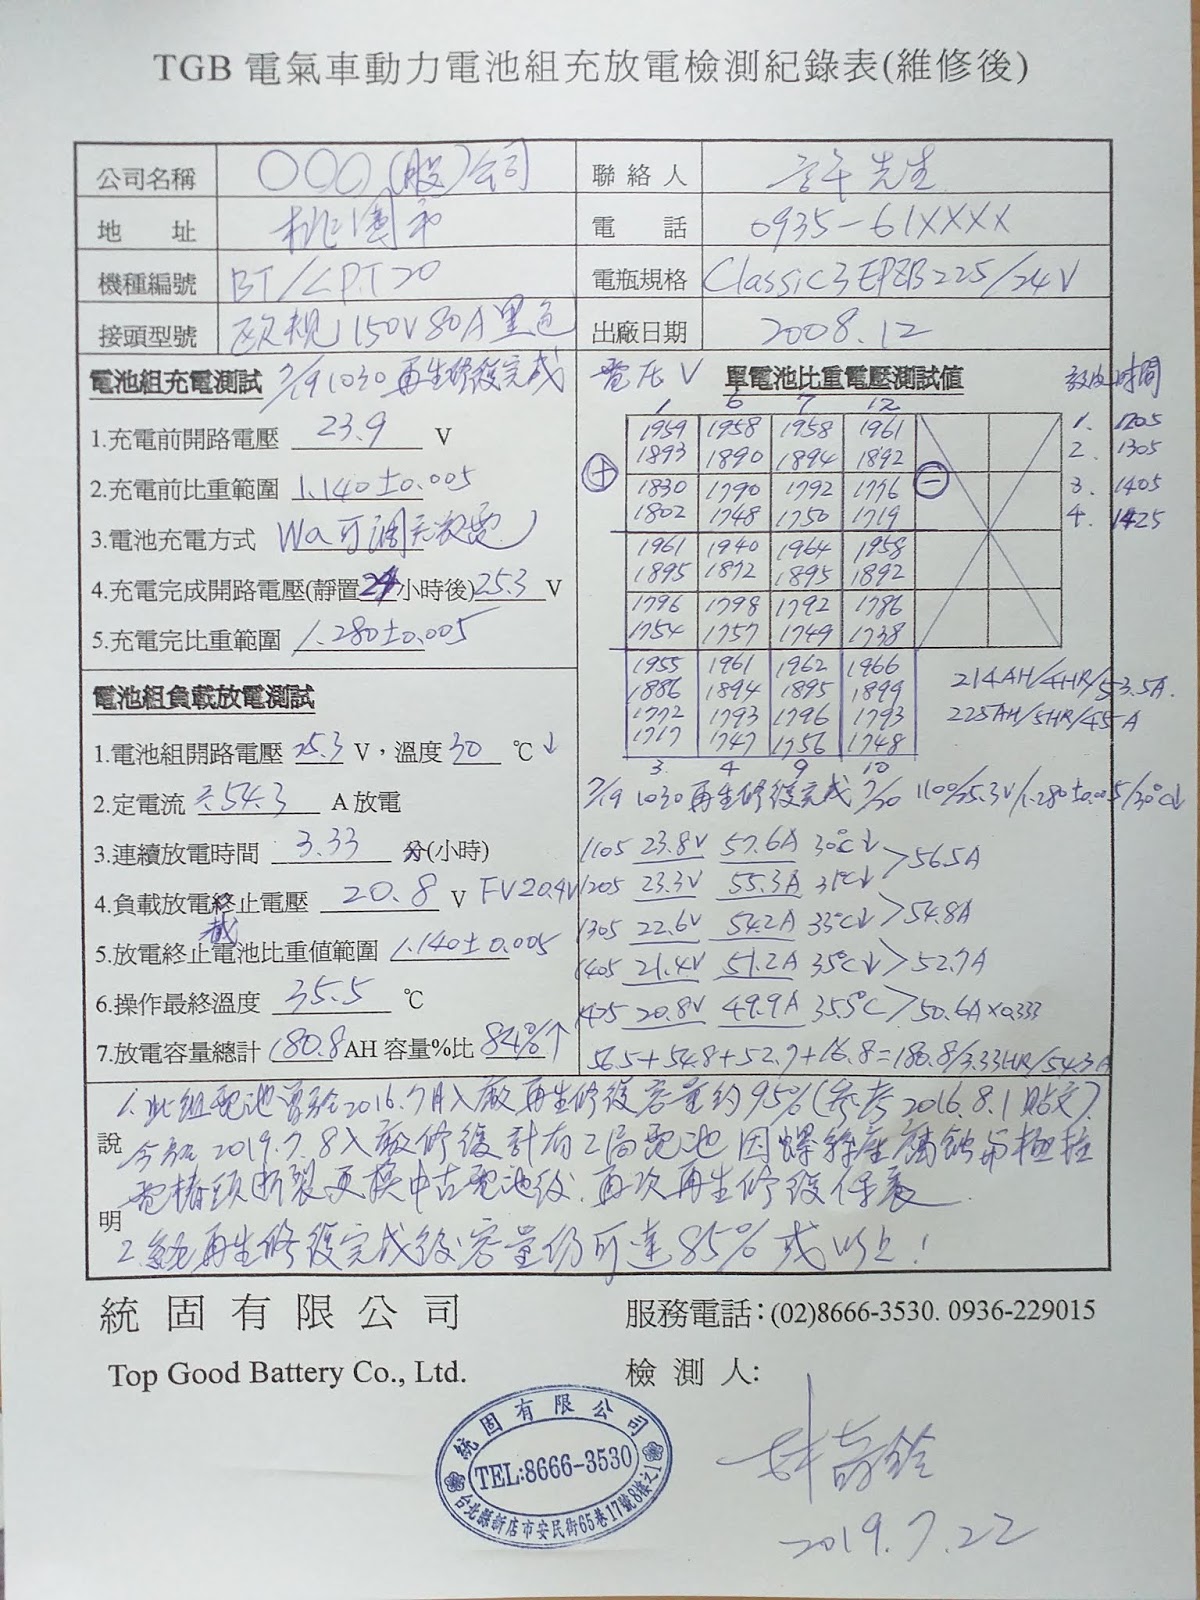 TGB 電氣車動力電池組充放電檢測紀錄表(維修後)
公司名稱 〇〇〇(股)公司 聯絡人 許先生
地址 桃園市 電話 0935-61XXXX
機種編號 BT/LPT20 電瓶規格 Classic 3EPZB225/24V
接頭型號 歐規150V80A黑色 出廠日期 2008.12
電池組充電測試 7/19 1030再生修復完成
1.充電前開路電壓 23.9 V
2.充電前比重範圍 1.140±0.005
3.電池充電方式 Wa可調充放電
4.充電完成開路電壓(靜置24小時後)25.3 V
5.充電完比重範圍 1.280±0.005
電池組負載放電測試
1.電池組開路電壓 25.3 V，溫度30 ℃↓
2.定電流 ±54.3 A 放電
3.連續放電時間 3.33 分(小時)
4.負載放電終止電壓 20.8 V FV20.4V
截
5.放電終止電池比重值範圍 1.140±0.005
6.操作最終溫度 35.5 ℃
7.放電容量總計 180.8AH 容量%比 84%↑
電壓V 單電池比重電壓測試值 放電時間
1 6 7 12
1959 1958 1958 1961
1893 1890 1894 1892
+ 1830 1790 1792 1776 −
1802 1748 1750 1719
1961 1940 1964 1958
1895 1872 1895 1892
1796 1798 1792 1786
1754 1757 1749 1738
1955 1961 1962 1966
1886 1894 1895 1899
1772 1793 1796 1793
1717 1747 1756 1748
3 4 9 10
1. 1205
2. 1305
3. 1405
4. 1425
214AH/4HR/53.5A.
225AH/5HR/45A
7/19 1030再生修復完成 7/20 1100/25.3V/1.280±0.005/30℃↓
1105 23.8V 57.6A 30℃↓ >56.5A
1205 23.3V 55.3A 31℃↓
1305 22.6V 54.2A 33℃↓ >54.8A
1405 21.4V 51.2A 35℃↓ >52.7A
1425 20.8V 49.9A 35.5℃ >50.6A×0.333
56.5+54.8+52.7+16.8=180.8/3.33HR/54.3A
說明
1.此組電池曾於2016.7月入廠再生修復容量約95%(參考2016.8.1貼文).
今於2019.7.8入廠修復計有2局電池因螺絲座腐蝕與極柱
電樁頭斷裂更換中古電池後.再次再生修復保養
2.再生修復完成後容量仍可達85%或以上!
統固有限公司 服務電話：(02)8666-3530. 0936-229015
Top Good Battery Co., Ltd. 檢測人:
統固有限公司
TEL:8666-3530
台北縣新店市安民街65巷17號8樓之1
2019.7.22